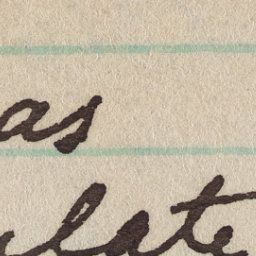 as
late